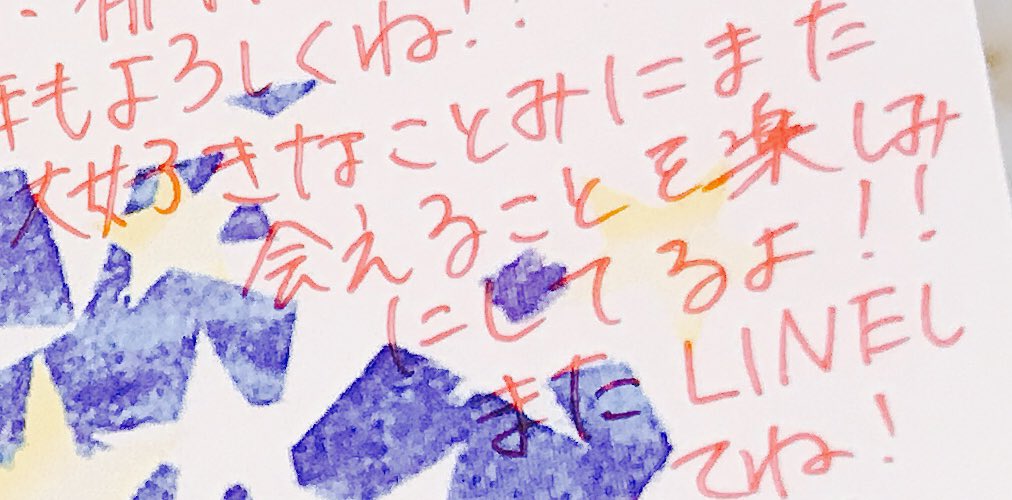 年もよろしくね!!
大好きなことみにまた
会えることを楽しみ
にしてるよ!!
またLINEし
てね!